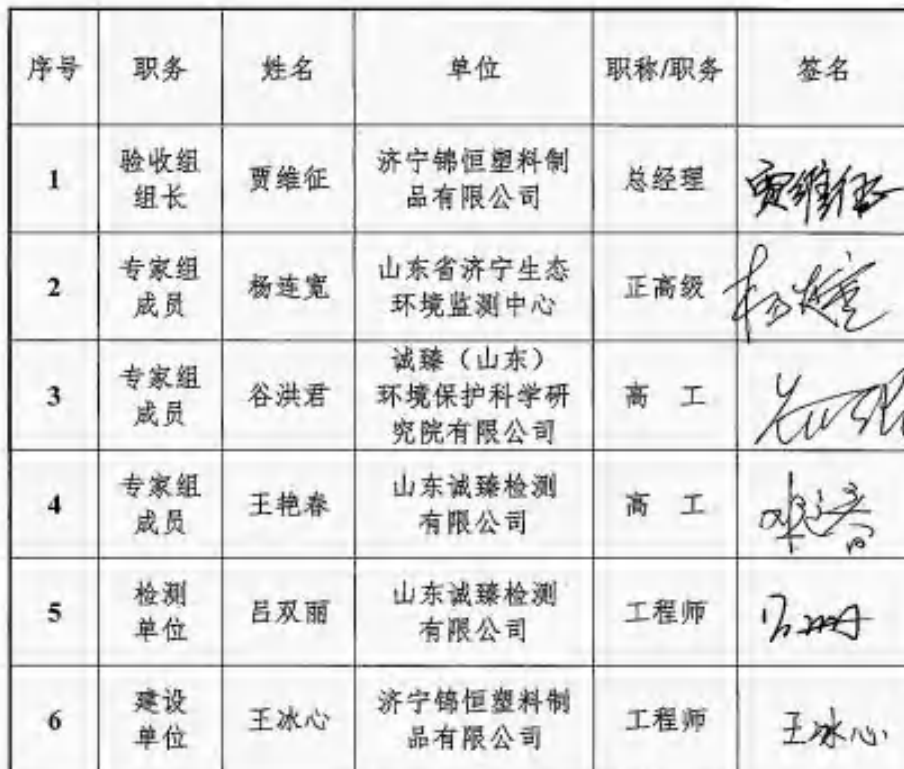 序号 职务 姓名 单位 职称/职务 签名
1 验收组 组长 贾维征 济宁锦恒塑料制 品有限公司 总经理 贾维征
2 专家组 成员 杨连宽 山东省济宁生态 环境监测中心 正高级 杨连宽
3 专家组 成员 谷洪君 诚臻（山东） 环境保护科学研 究院有限公司 高 工
4 专家组 成员 王艳春 山东诚臻检测 有限公司 高 工
5 检测 单位 吕双丽 山东诚臻检测 有限公司 工程师
6 建设 单位 王冰心 济宁锦恒塑料制 品有限公司 工程师 王冰心